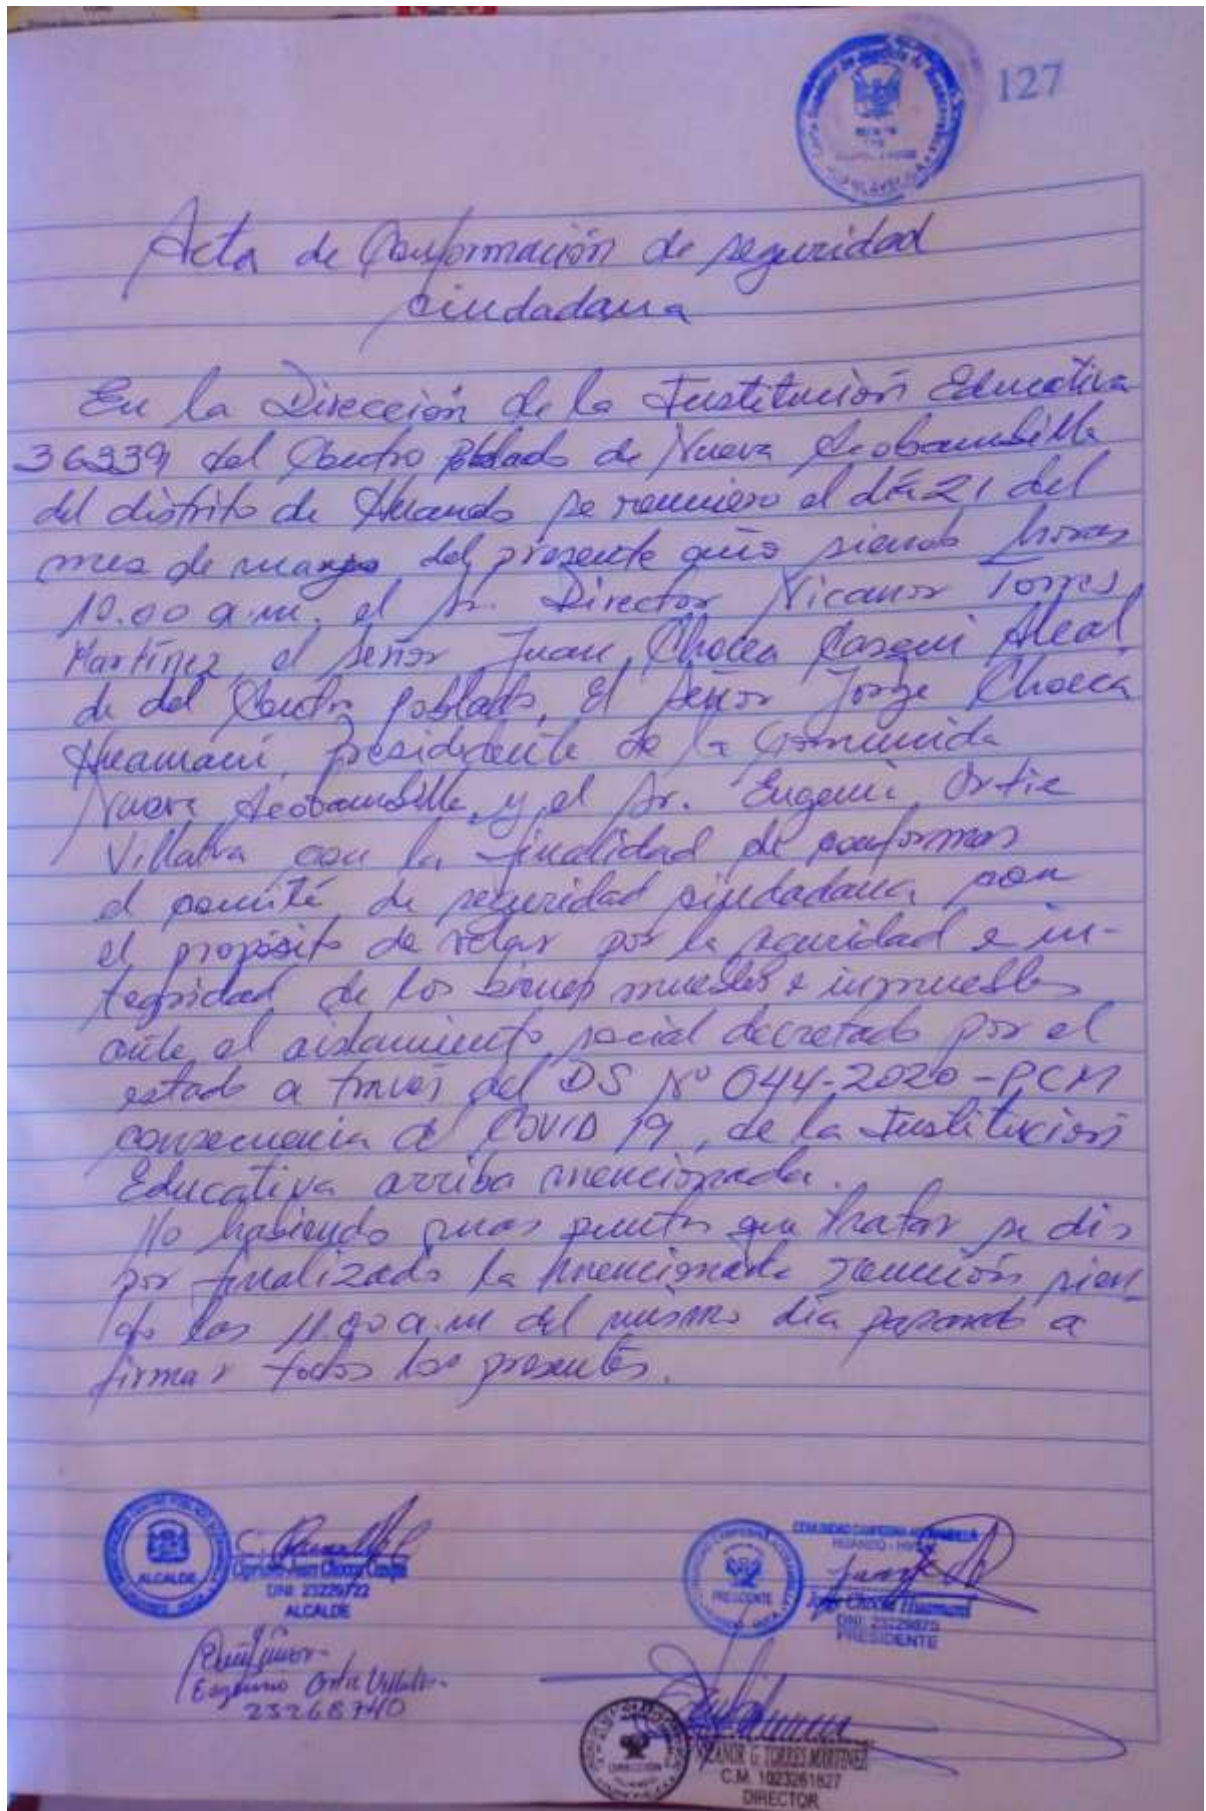 127
Acta de Conformación de seguridad
ciudadana
En la Dirección de la Institución Educativa
36339 del Centro poblado de Nueva Acobambilla
del distrito de Huando se reunieron el día 21 del
mes de marzo del presente año siendo horas
10.00 a.m. el Sr. Director Nicanor Torres
Martínez, el señor Juan Chocca Casqui Alcal
de del Centro poblado, el señor Jorge Chocca
Huamani, presidente de la Comunida
Nueva Acobambilla, y el Sr. Eugenio Ortiz
Villalva con la finalidad de conformar
el comité de seguridad ciudadana, con
el propósito de velar por la seguridad e in-
tegridad de los bienes muebles e inmuebles
ante el aislamiento social decretado por el
estado a través del DS Nº 044-2020-PCM
consecuencia de COVID 19, de la Institución
Educativa arriba mencionada.
No habiendo mas puntos que tratar se dio
por finalizado la mencionada reunión sien-
do las 11.00 a.m del mismo día pasando a
firmar todos los presentes.
ALCALDE
DNI: 23229722
ALCALDE
Eugenio Ortiz Villalva
23268740
PRESIDENTE
COMUNIDAD CAMPESINA
HUANDO
Jorge Chocca Huamaní
PRESIDENTE
DIRECCION
NICANOR G. TORRES MARTINEZ
C.M. 1023261827
DIRECTOR